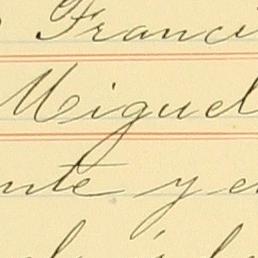 Franci
Miguel
nte y e